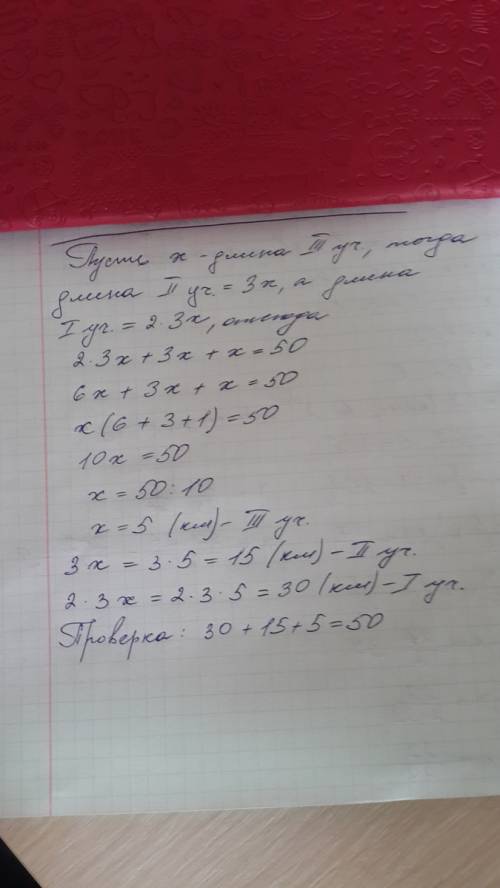 Пусть x - длина III уч, тогда
длина II уч. = 3x, а длина
I уч. = 2·3x, отсюда
2·3x + 3x + x = 50
6x + 3x + x = 50
x(6 + 3 + 1) = 50
10x = 50
x = 50 : 10
x = 5 (км) - III уч.
3x = 3·5 = 15 (км) - II уч.
2·3x = 2·3·5 = 30 (км) - I уч.
Проверка: 30 + 15 + 5 = 50